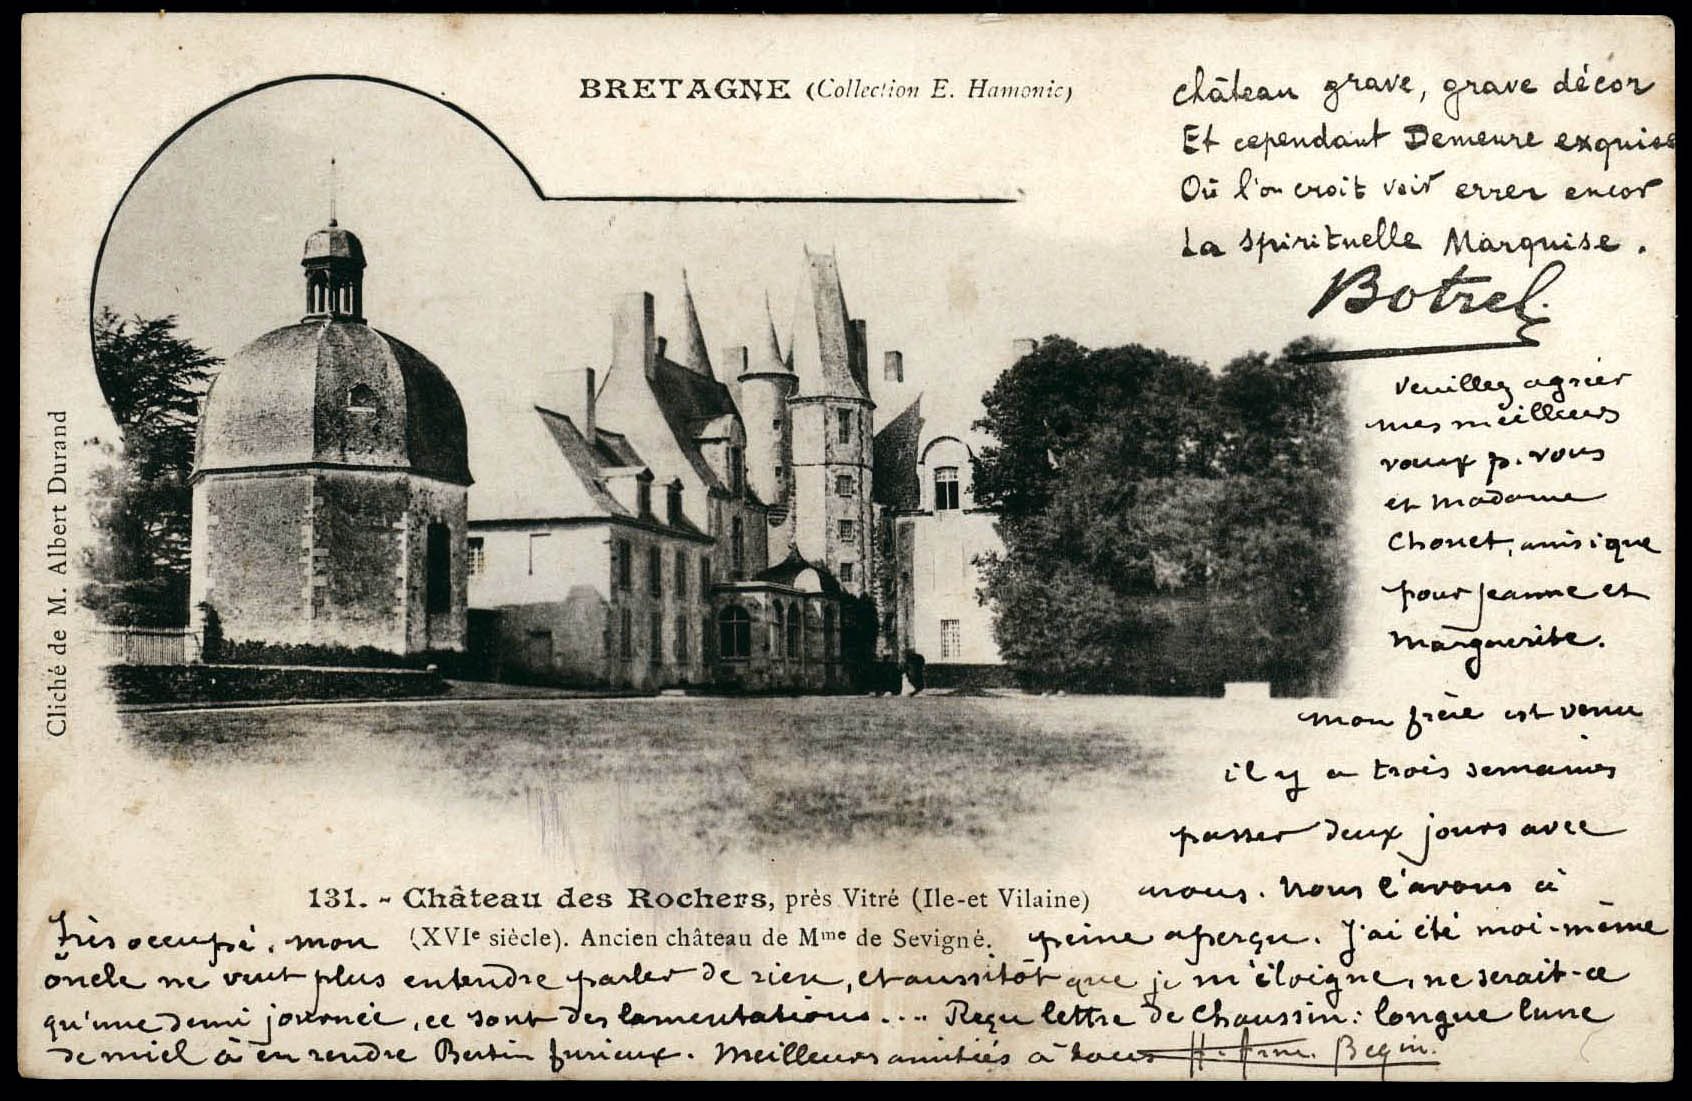 BRETAGNE (Collection E. Hamonic)
Château grave, grave décor
Et cependant Demeure exquise
Où l'on croit voir errer encor
La spirituelle Marquise.
Botrel
Cliché de M. Albert Durand
Veuillez agréer
mes meilleurs
vœux p. vous
et Madame
Chouet, ainsi que
pour Jeanne et
Marguerite.
Mon frère est venu
il y a trois semaines
passer deux jours avec
nous. Nous l'avons à
peine aperçu. J'ai été moi-même
131. - Château des Rochers, près Vitré (Ile-et Vilaine)
(XVIe siècle). Ancien château de Mme de Sevigné.
Très occupé, mon
oncle ne veut plus entendre parler de rien, et aussitôt que je m'éloigne, ne serait-ce
qu'une demi journée, ce sont des lamentations.... Reçu lettre de Chaussin: longue lune
de miel à en rendre Bertin furieux. Meilleures amitiés à tous H. Begin.